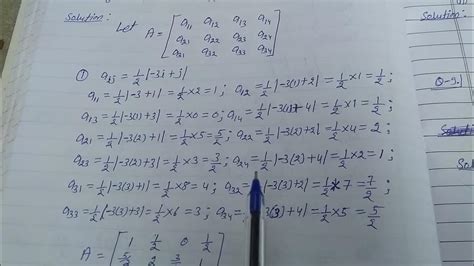 Solution:
Let A = [a11 a12 a13 a14
a21 a22 a23 a24
a31 a32 a33 a34]
① aij = 1/2 |-3i + j|
a11 = 1/2 |-3+1| = 1/2 × 2 = 1 ; a12 = 1/2 |-3(1)+2| = 1/2 × 1 = 1/2 ;
a13 = 1/2 |-3(1)+3| = 1/2 × 0 = 0 ; a14 = 1/2 |-3(1)+4| = 1/2 × 1 = 1/2 ;
a21 = 1/2 |-3(2)+1| = 1/2 × 5 = 5/2 ; a22 = 1/2 |-3(2)+2| = 1/2 × 4 = 2 ;
a23 = 1/2 |-3(2)+3| = 1/2 × 3 = 3/2 ; a24 = 1/2 |-3(2)+4| = 1/2 × 2 = 1 ;
a31 = 1/2 |-3(3)+1| = 1/2 × 8 = 4 ; a32 = |-3(3)+2| = 1/2 * 7 = 7/2 ;
a33 = 1/2 |-3(3)+3| = 1/2 × 6 = 3 ; a34 = 3(3)+4| = 1/2 × 5 = 5/2
A = [1 1/2 0 1/2
5/2 2 3/2 1
Solution: